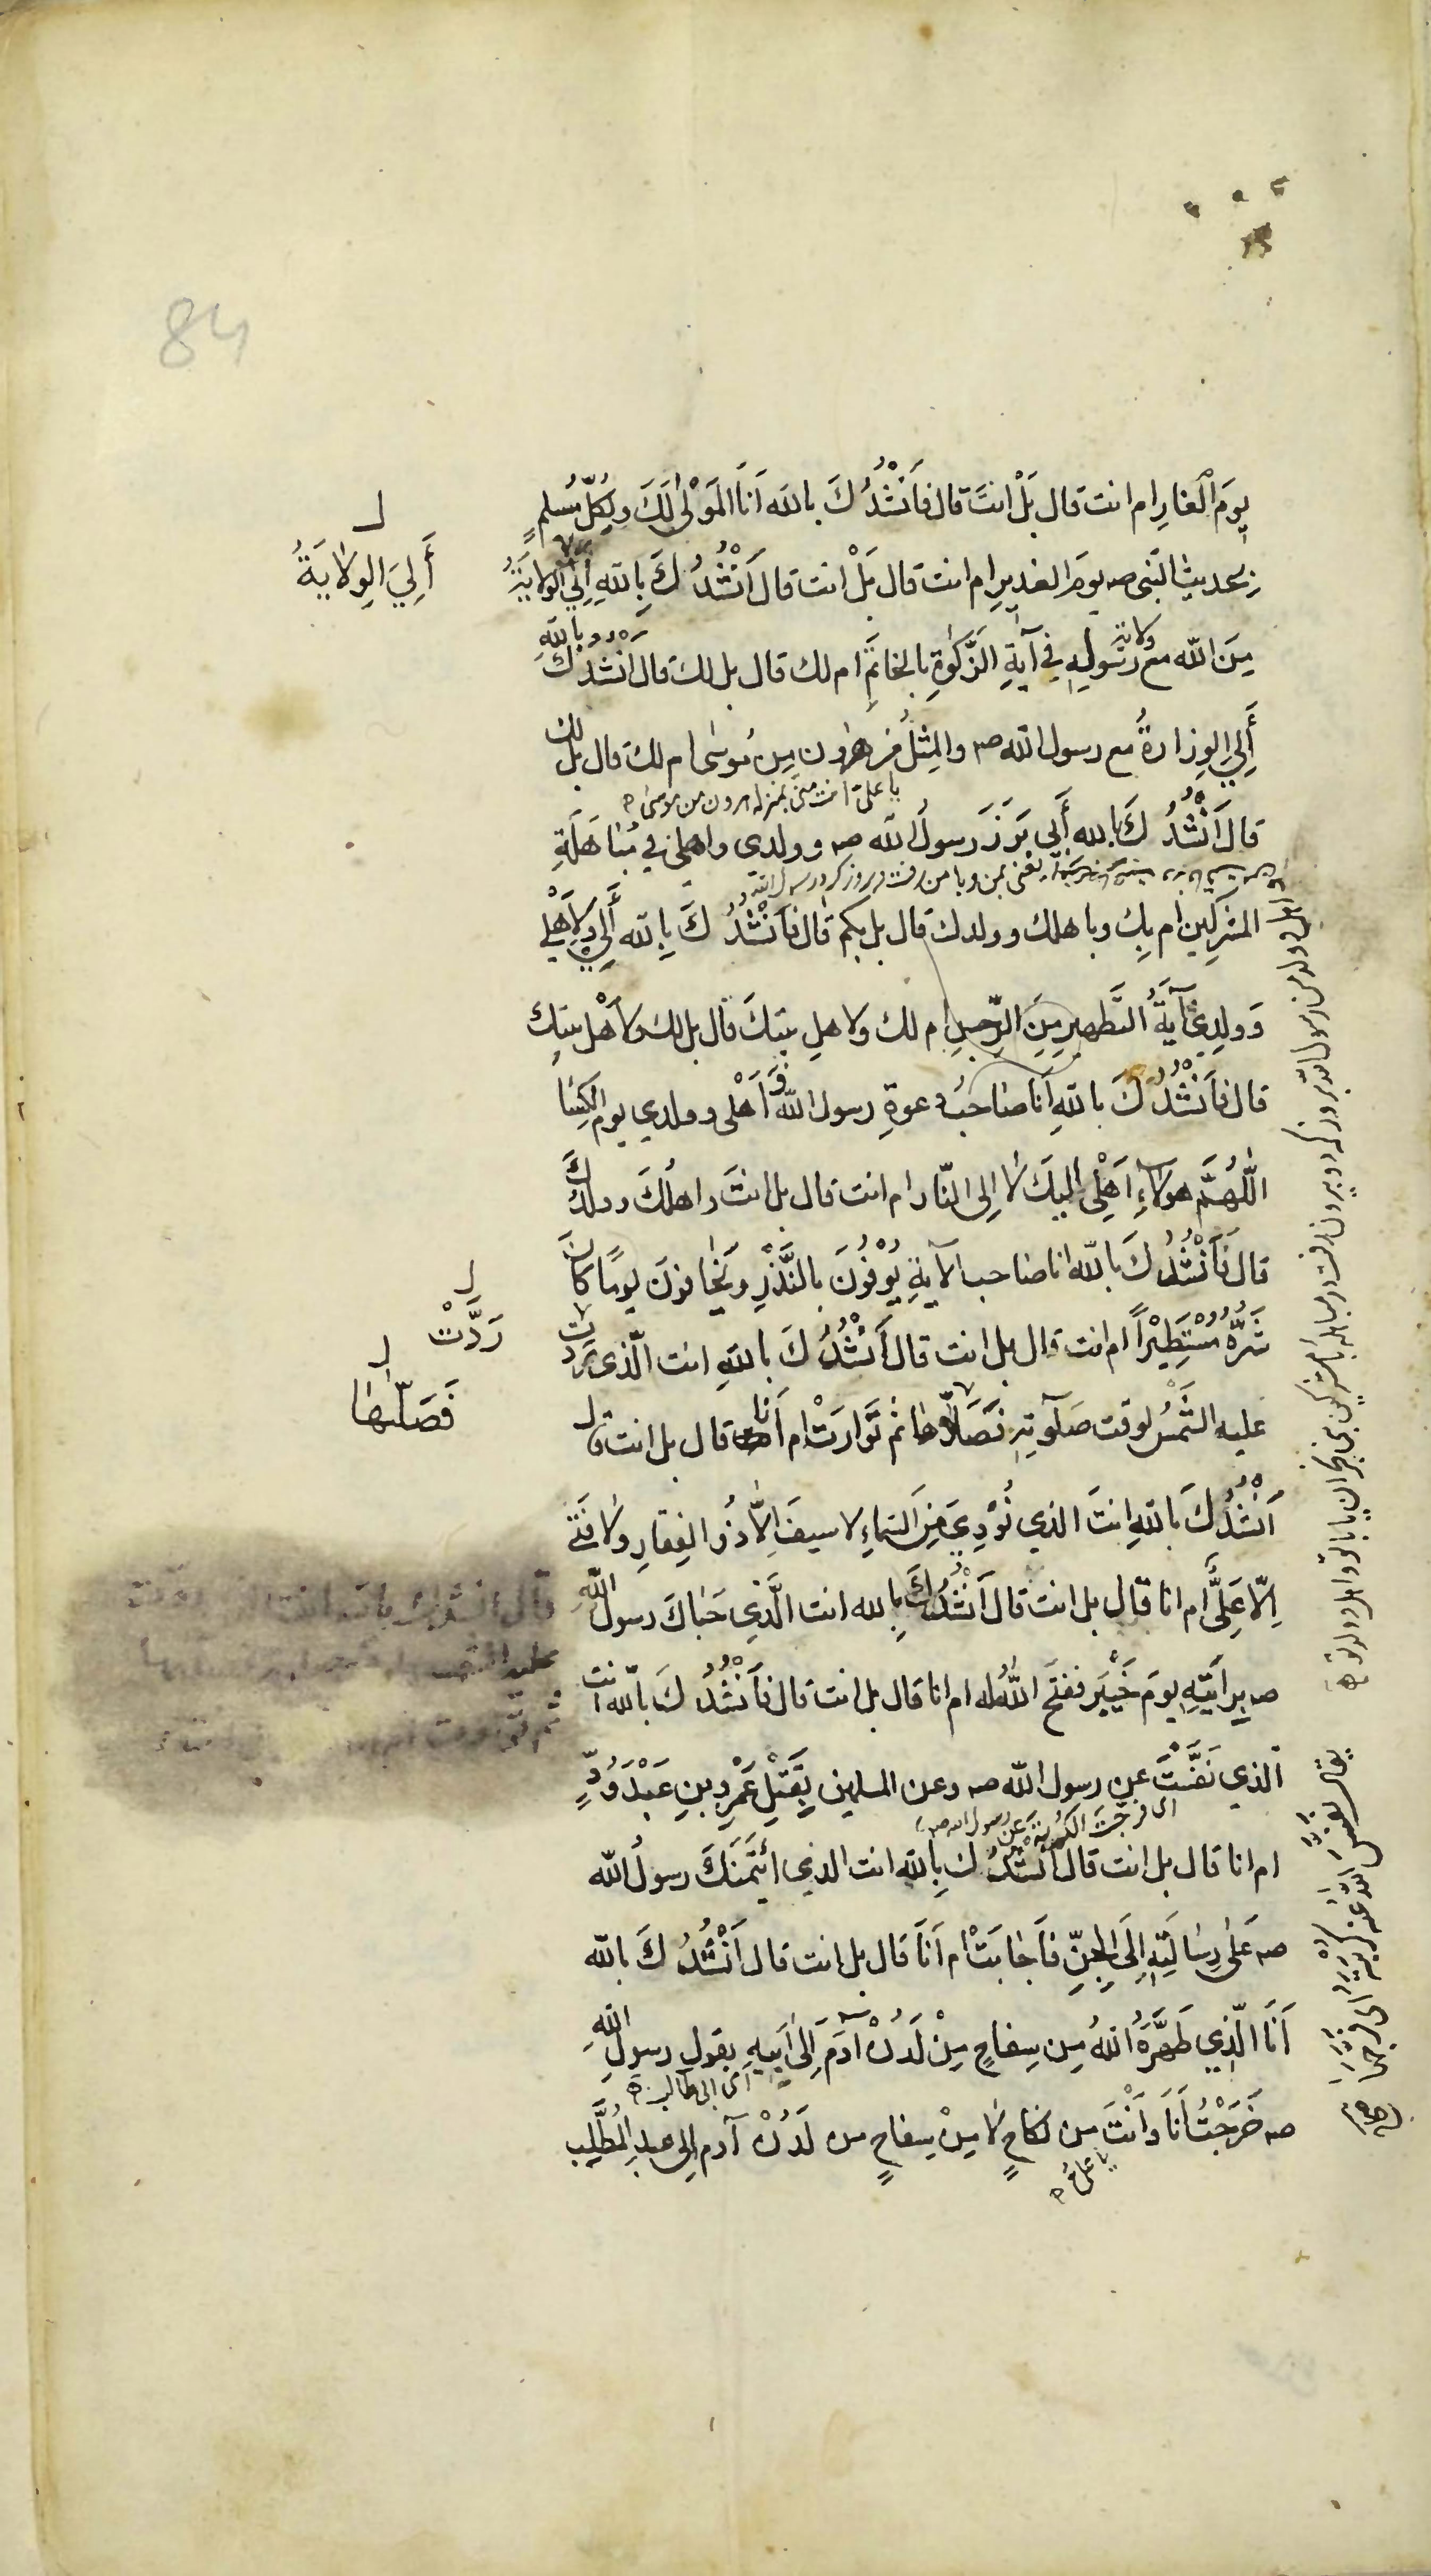 84
يومَ الْغارِ ام انت قال بَلْ انتَ قال فَاَنْشُدُكَ بالله اَنَا المَوْلیٰ لَكَ ولِكُلِّ مُسلمٍ
بِحديث النّبی صہ يومَ الغديرِ ام انت قال بَلْ انت قال اَنْشُدُكَ بِاللهِ أَلِيَ الوِلايَةُ
أَلِيَ الوِلايَةُ
مِنَ الله مع ولاية رسولِهِ في آيَةِ الزَّكٰوةِ بالخاتَمِ ام لك قال بل لك قال انْشُدُكَ باللهِ
أَلِيَ الوِزارةُ مع رسول الله صہ والمِثلُ من هٰرون مِن مُوسٰی ام لك قال بل لك
يا علی انت منّی بمنزلة هرون من موسی
قال اَنْشُدُكَ بالله أَبِي بَرَزَ رسولُ الله صہ وولدی واهلی في مُباهَلَةِ
يعنی بمن وبا من رفت
المشركِين ام بِكَ وباهلك وولدك قال بل بكم قال فَاَنْشُدُكَ بِالله أَلِيَ ولِاَهْلِي
وَوَلدِي آيَةُ التَّطهيرِ مِنَ الرِّجسِ ام لك ولاهلِ بيتكَ قال بل لك ولاَهْل بيتك
قال فاَنْشُدُكَ باللهِ اَنا صاحبُ دعوةِ رسول الله وَاَهْلی وولدي يوم الكِساءِ
اللّٰهُمَّ هولاءِ اَهْلِي اليكَ لا اِلی النّار ام انت قال بل انتَ واهلُكَ وولدُكَ
قال فَاَنْشُدُكَ بالله انا صاحب الآيةِ يُوْفُونَ بالنَّذْرِ ويَخٰافونَ يومًا كانَ
شَرُّهُ مُسْتَطِيْرًا ام انت قال بل انت قال اَنْشُدُكَ باللهِ انت الّذی رُدَّت
رَدَّتْ
عليه الشَّمسُ لوقت صَلٰوتِهِ فَصَلّاها ثم تَوارَتْ ام اَنا قال بل انت قال
فَصَلّٰىها
اَنْشُدُكَ باللهِ انتَ الذي نُوْدِيَ مِنَ السّماءِ لا سيفَ اِلّا ذُو الفِقارِ ولا فَتٰى
اِلّا عَلِيٌّ ام انا قال بل انت قال اَنْشُدُكَ بِالله انت الَّذِي حَباكَ رسول اللهِ
صہ بِرايَتِهِ يومَ خَيْبَر ففتحَ اللهُ له ام انا قال بل انت قال فَاَنْشُدُكَ بالله انت
الذي نَفَّسْتَ عن رسول الله صہ وعن المسلمين بِقَتْلِ عَمْرِو بنِ عَبْدِ وُدٍّ
ای فرّجتَ الكُربةَ عن رسول الله صہ
ام انا قال بل انت قال اَنْشُدُكَ بِاللهِ انت الذي ائْتَمَنَكَ رسولُ الله
صہ عَلیٰ رِسٰالَتِهِ اِلَی الجِنِّ فَاَجٰابَتْ ام اَنَا قال بل انت قال اَنْشُدُكَ بالله
اَنَا الّذِي طَهَّرَهُ اللهُ مِن سِفاحٍ مِنْ لَدُنْ آدَمَ اِلیٰ اَبِيهِ بقولِ رسولِ اللهِ
ای ابی طالب
صہ خَرَجْتُ اَنَا وَاَنْتَ من نكاحٍ لا مِنْ سِفاحٍ من لَدُنْ آدم الی عبد المُطَّلِب
يا علی
يقال نفّس الله عنه كربته ای فرّجها